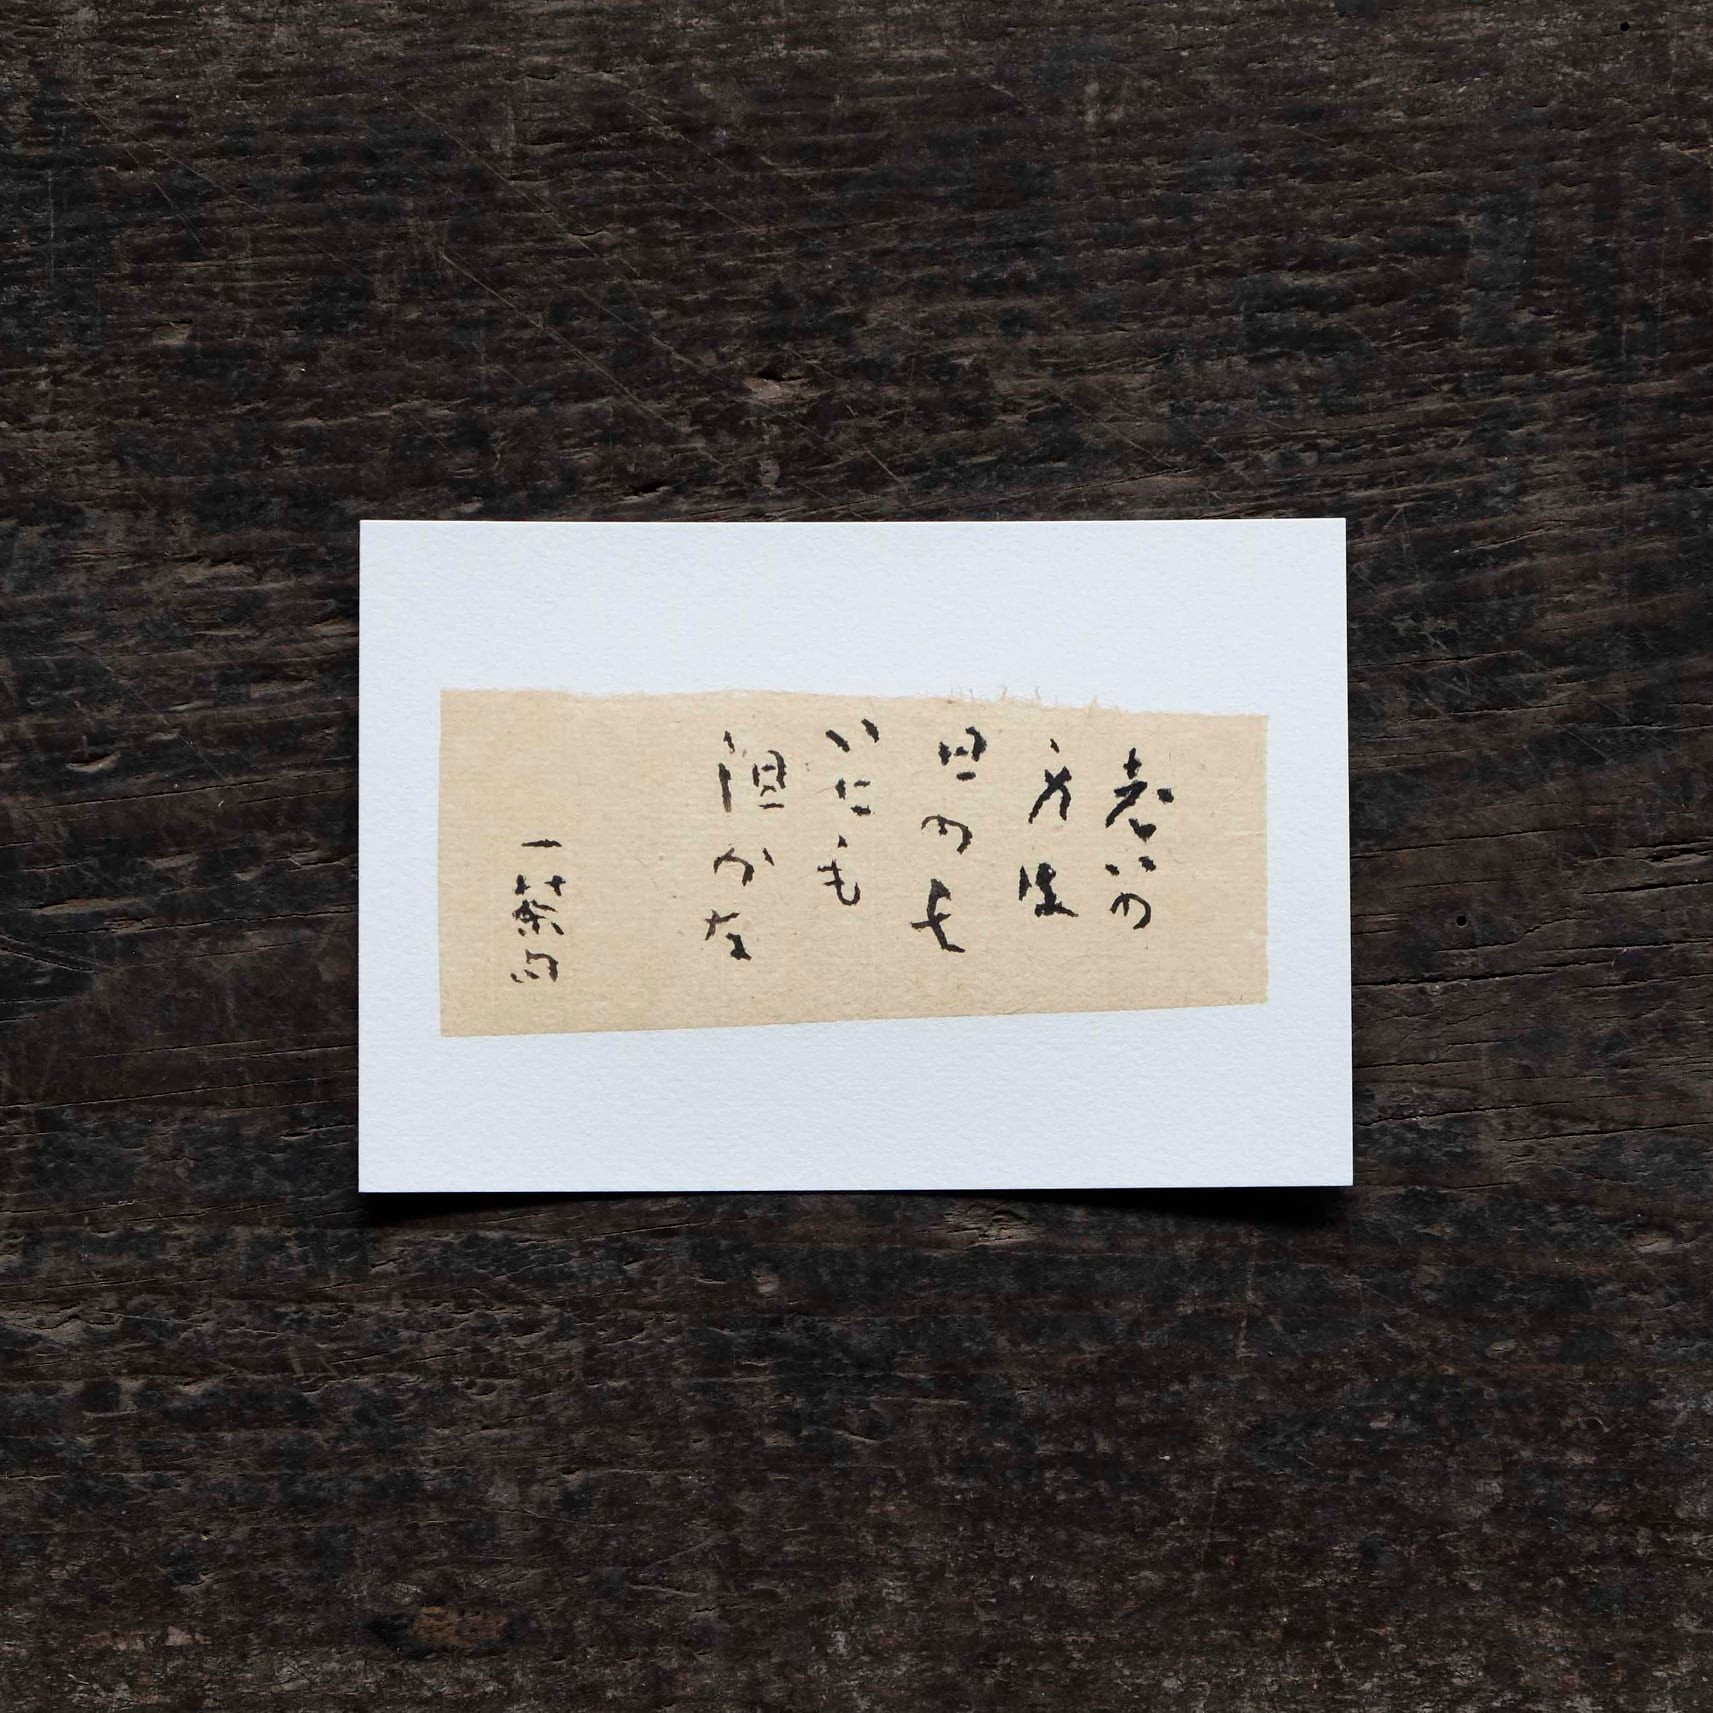 老いの
身は
日の長
いにも
泪かな
一茶句